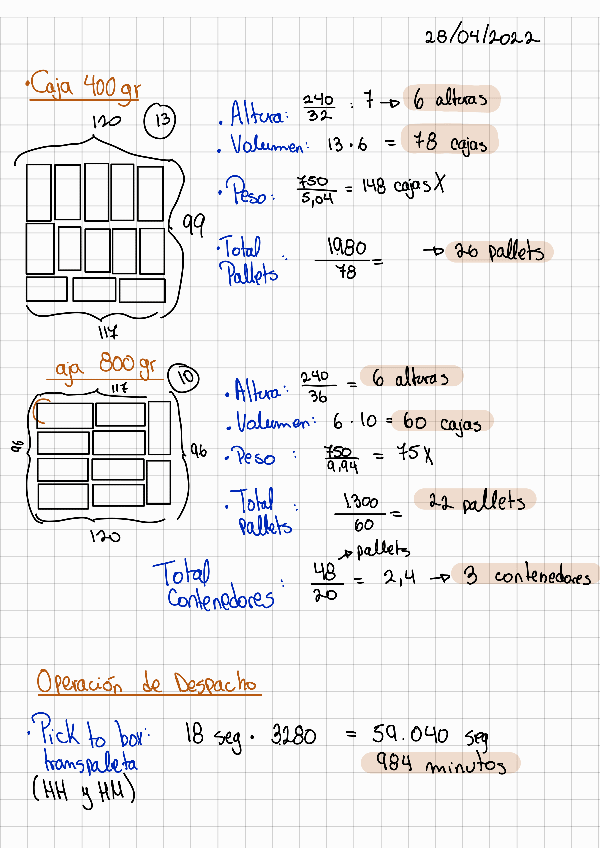 28/04/2022
· Caja 400 gr
120 13
99
117
· Altura: 240/32 : 7 → 6 alturas
· Volumen: 13 · 6 = 78 cajas
· Peso: 750/5,04 = 148 cajas X
· Total Pallets : 1980/78 = → 26 pallets
aja 800 gr 10
117
96 96
120
· Altura: 240/36 = 6 alturas
· Volumen: 6 · 10 = 60 cajas
· Peso : 750/9,94 = 75 X
· Total pallets : 1300/60 = 22 pallets
→ pallets
Total Contenedores : 48/20 = 2,4 → 3 contenedores
Operación de Despacho
· Pick to box: 18 seg · 3280 = 59.040 seg
transpaleta 984 minutos
(HH y HM)